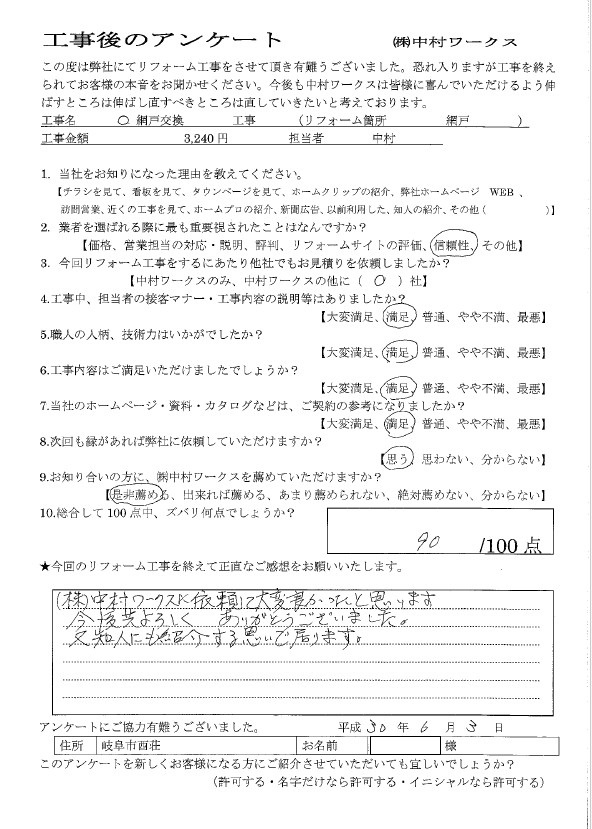 工事後のアンケート ㈱中村ワークス
この度は弊社にてリフォーム工事をさせて頂き有難うございました。恐れ入りますが工事を終え
られてお客様の本音をお聞かせください。今後も中村ワークスは皆様に喜んでいただけるよう伸
ばすところは伸ばし直すべきところは直していきたいと考えております。
工事名 〇 網戸交換 工事 （リフォーム箇所 網戸 ）
工事金額 3,240円 担当者 中村
1. 当社をお知りになった理由を教えてください。
【チラシを見て、看板を見て、タウンページを見て、ホームクリップの紹介、弊社ホームページ WEB 、
訪問営業、近くの工事を見て、ホームプロの紹介、新聞広告、以前利用した、知人の紹介、その他（ ）】
2. 業者を選ばれる際に最も重要視されたことはなんですか？
【価格、営業担当の対応・説明、評判、リフォームサイトの評価、信頼性、その他】
3. 今回リフォーム工事をするにあたり他社でもお見積りを依頼しましたか？
【中村ワークスのみ、中村ワークスの他に（ 0 ）社】
4.工事中、担当者の接客マナー・工事内容の説明等はありましたか？
【大変満足、満足、普通、やや不満、最悪】
5.職人の人柄、技術力はいかがでしたか？
【大変満足、満足、普通、やや不満、最悪】
6.工事内容はご満足いただけましたでしょうか？
【大変満足、満足、普通、やや不満、最悪】
7.当社のホームページ・資料・カタログなどは、ご契約の参考になりましたか？
【大変満足、満足、普通、やや不満、最悪】
8.次回も縁があれば弊社に依頼していただけますか？
【思う、思わない、分からない】
9.お知り合いの方に、㈱中村ワークスを薦めていただけますか？
【是非薦める、出来れば薦める、あまり薦められない、絶対薦めない、分からない】
10.総合して100点中、ズバリ何点でしょうか？
90 /100点
★今回のリフォーム工事を終えて正直なご感想をお願いいたします。
(株)中村ワークスに依頼して大変良かったと思います
今後共よろしく ありがとうございました。
又知人にも紹介する思いで居ります。
アンケートにご協力有難うございました。 平成 30 年 6 月 3 日
住所 岐阜市西荘 お名前 様
このアンケートを新しくお客様になる方にご紹介させていただいても宜しいでしょうか？
（許可する・名字だけなら許可する・イニシャルなら許可する）